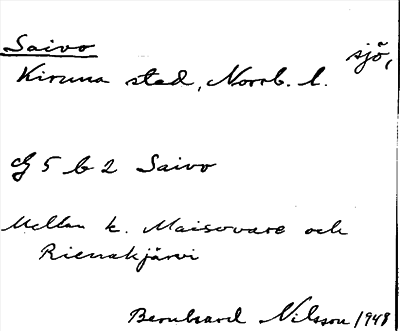 Saivo sjö,
Kiruna stad, Norrb. l.
cf 5 b 2 Saivo
Mellan k. Maisovare och
Rienakjärvi
Bernhard Nilsson 1948